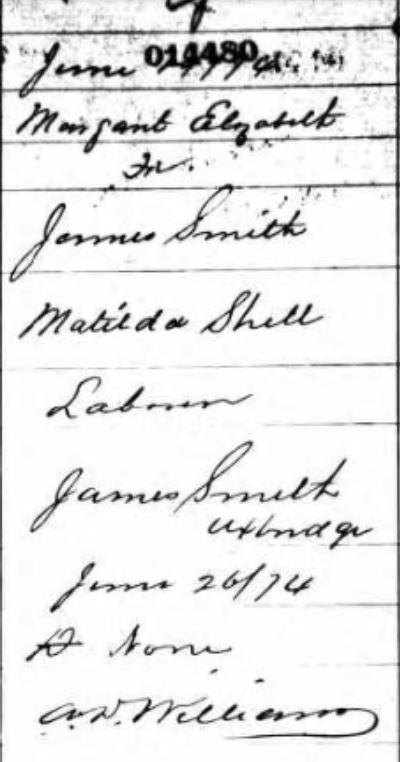 014480
June
Margaret Elizabeth
Fr.
James Smith
Matilda Shell
Laborer
James Smith
Uxbridge
June 26/74
None
Williams